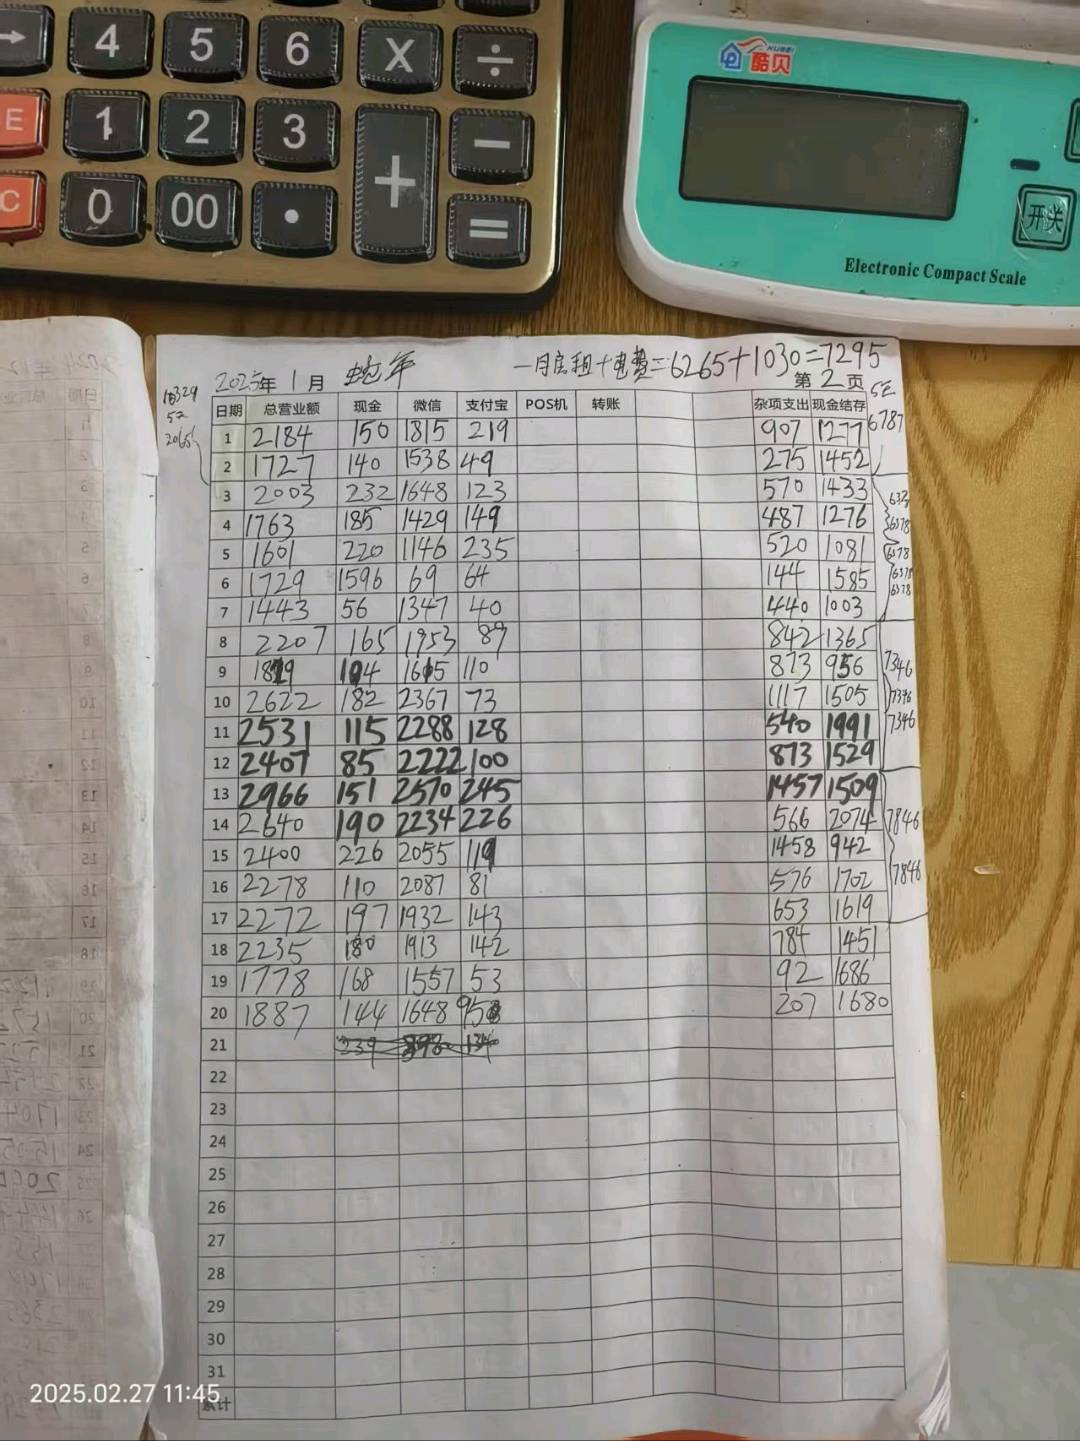 → 4 5 6 X ÷
E 1 2 3 + −
C 0 00 · =
KUBEI
酷贝
开关
Electronic Compact Scale
一月房租+电费=6265+1030=7295
2025年 1月 蛇年 第2页
日期 总营业额 现金 微信 支付宝 POS机 转账 杂项支出 现金结存
1 2184 150 1815 219 907 1277 6787
2 1727 140 1538 49 275 1452
3 2003 232 1648 123 570 1433
4 1763 185 1429 149 487 1276 6378
5 1601 220 1146 235 520 1081 6378
6 1729 1596 69 64 144 1585 6378
7 1443 56 1347 40 440 1003 6378
8 2207 165 1953 89 842 1365
9 1819 104 1605 110 873 956 7346
10 2622 182 2367 73 1117 1505 7346
11 2531 115 2288 128 540 1991 7346
12 2407 85 2222 100 873 1529
13 2966 151 2570 245 1457 1509
14 2640 190 2234 226 566 2074 7846
15 2400 226 2055 119 1458 942
16 2278 110 2087 81 576 1702 7846
17 2272 197 1932 143 653 1619
18 2235 180 1913 142 784 1451
19 1778 168 1557 53 92 1686
20 1887 144 1648 95 207 1680
21 239
22
23
24
25
26
27
28
29
30
31
累计
2025.02.27 11:45